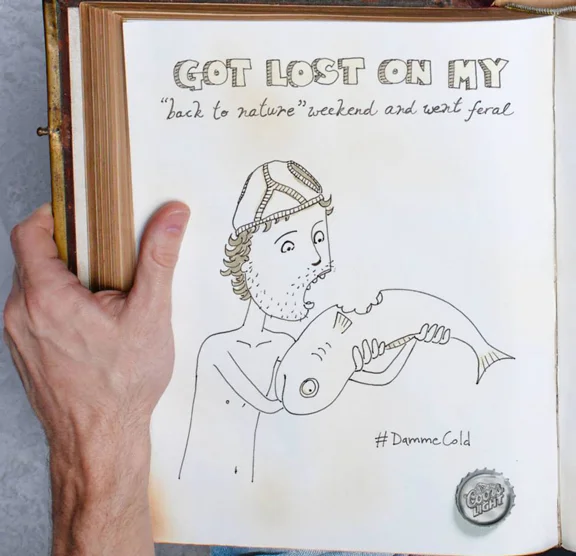 GOT LOST ON MY
"back to nature" weekend and went feral
#DammeCold
COORS
LIGHT